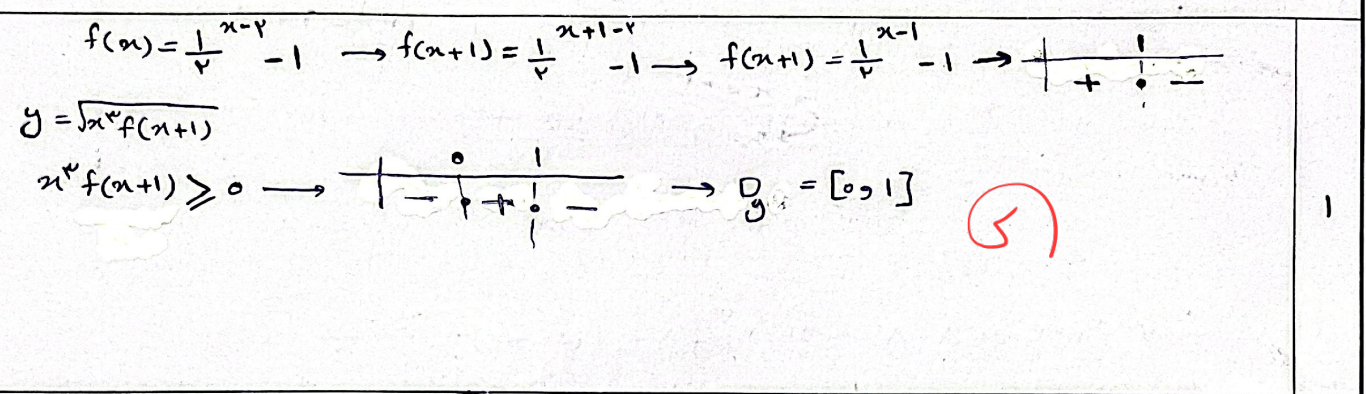 f(x) = 1/۲ ^x-۲ - 1 → f(x+1) = 1/۲ ^x+1-۲ - 1 → f(x+1) = 1/۲ ^x-1 - 1 → 1 + ۰ -
y = √x^۳ f(x+1)
x^۳ f(x+1) ≥ ۰ → ۰ 1 - ۰ + ۰ - → Dy = [۰ و 1]
1